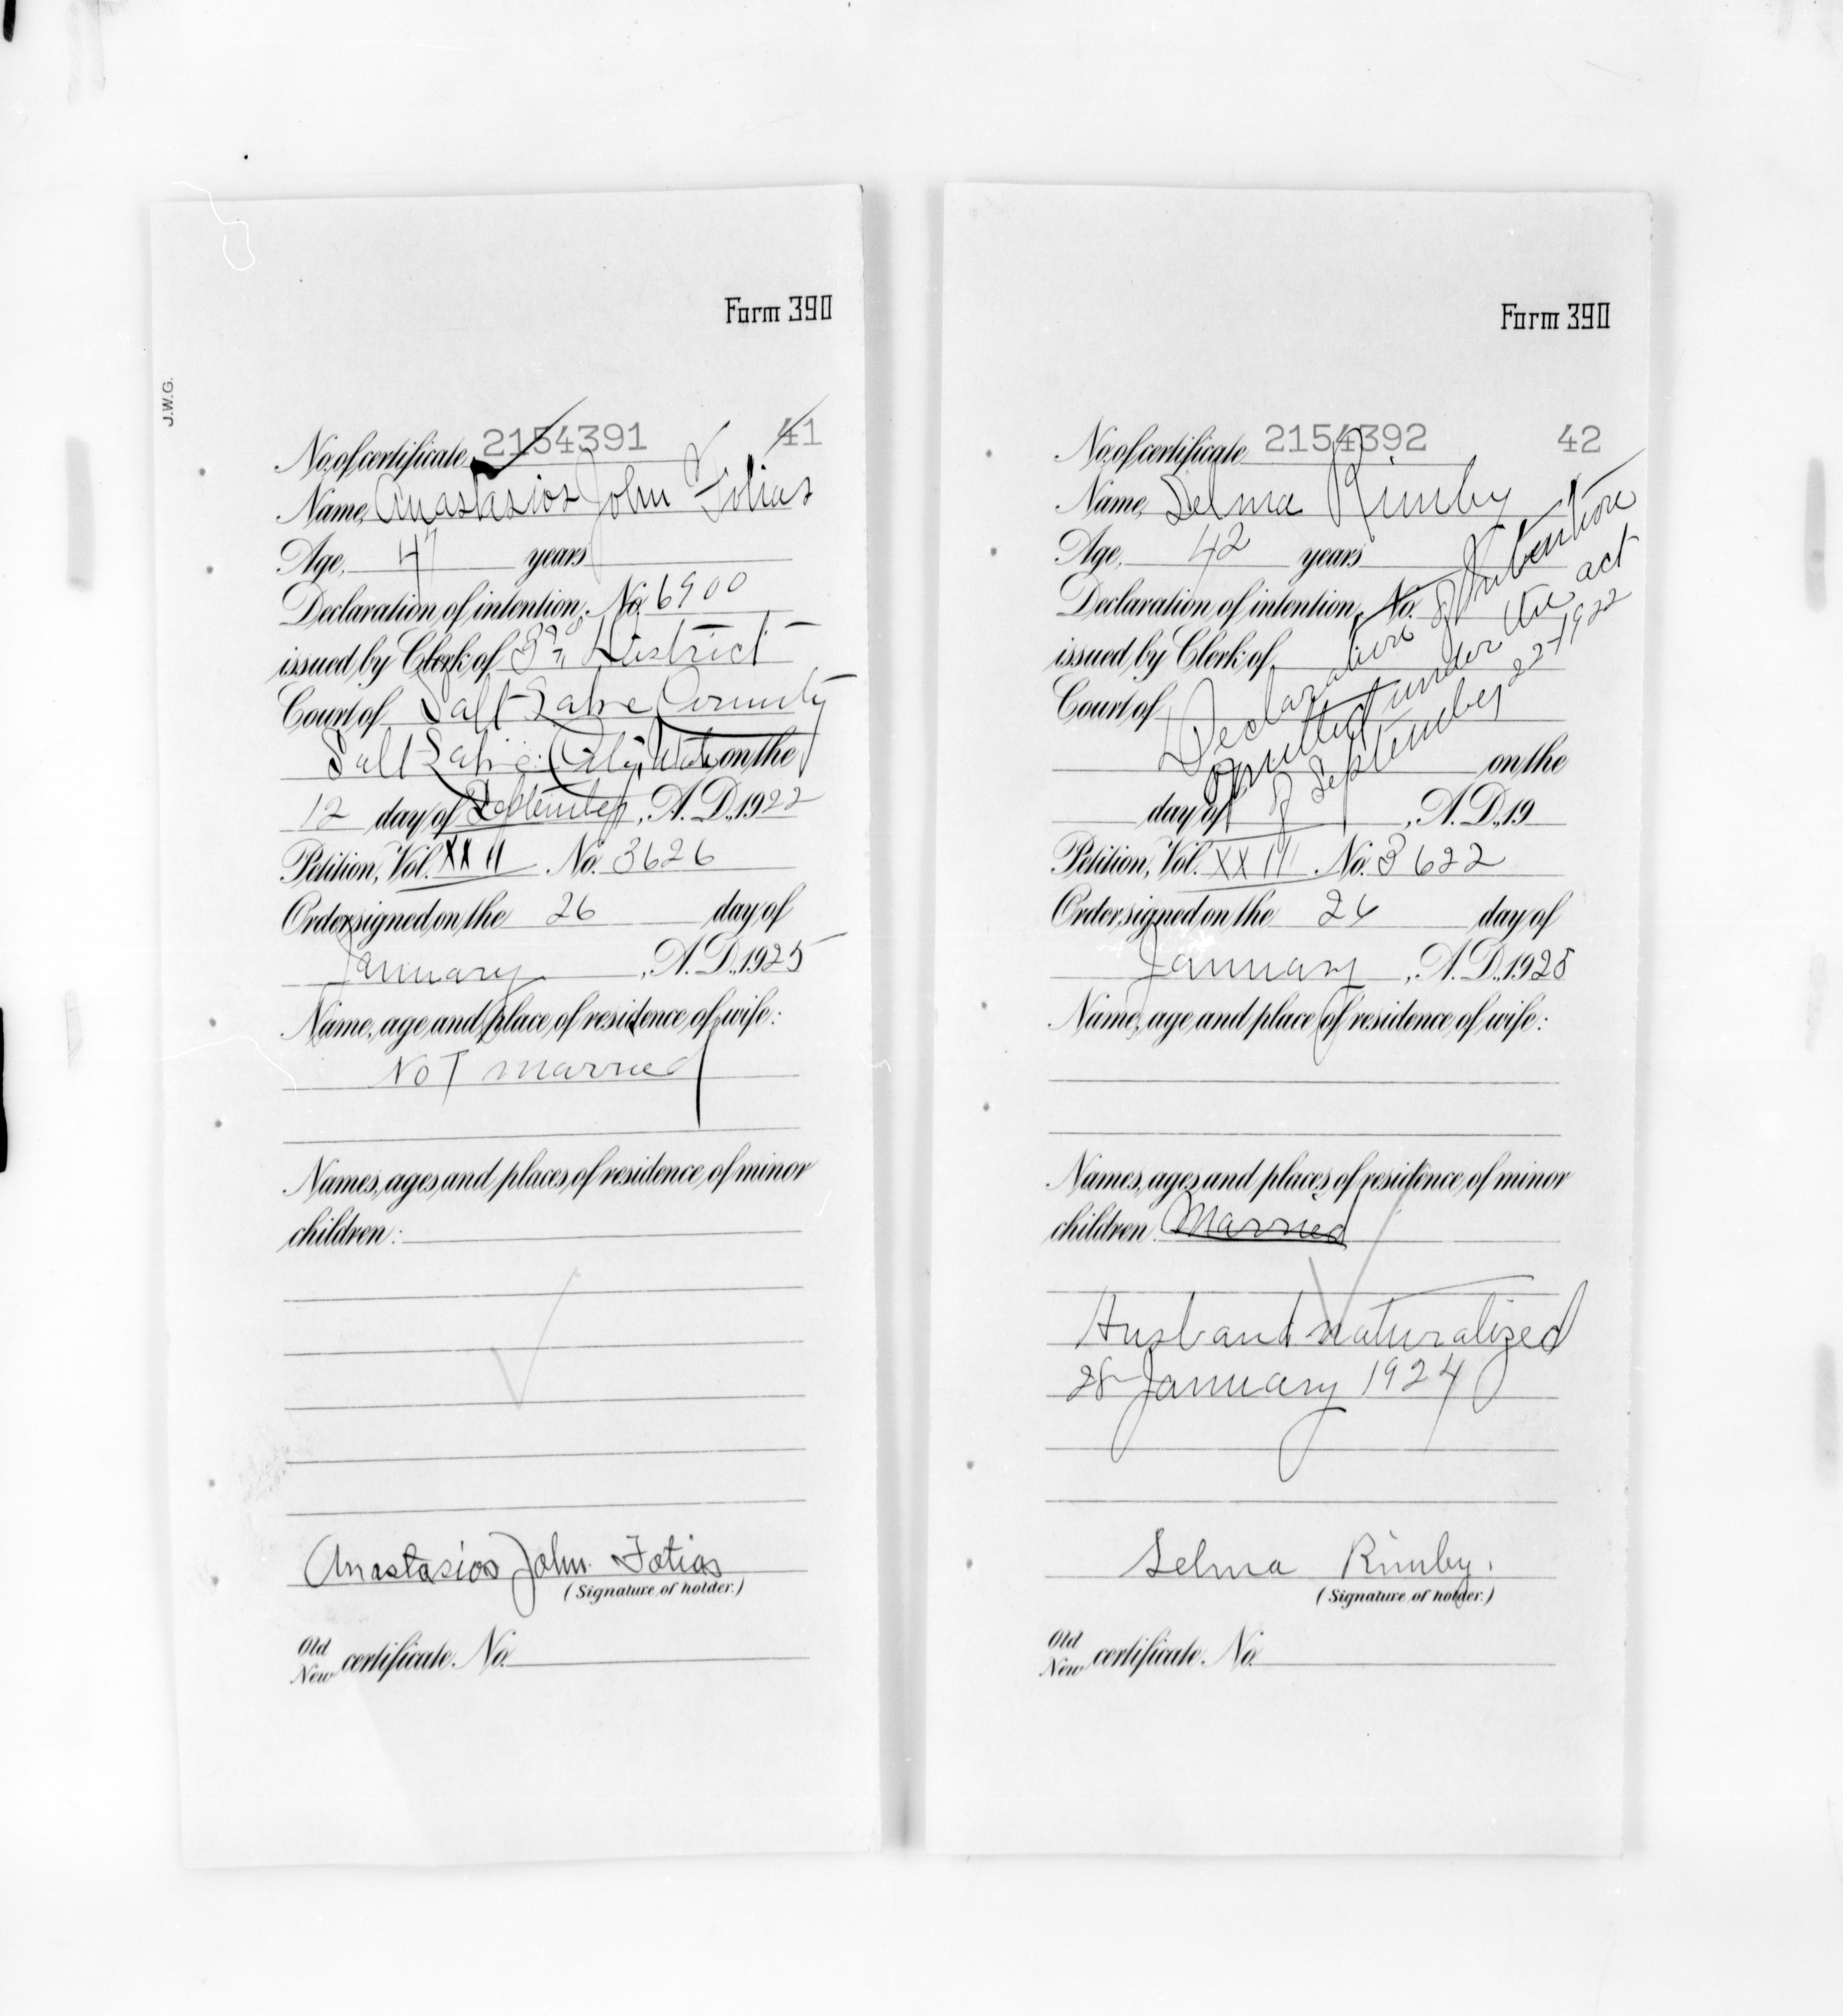 J.W.G.
Form 390
No. of certificate, 2154391 41
Name, Anastasios John Fotias
Age, 47 years
Declaration of intention, No. 6900
issued by Clerk of 3rd District
Court of Salt Lake County
Salt Lake City, Utah on the
12 day of September, A. D., 1922
Petition, Vol. XXII No. 3626
Order signed on the 26 day of
January, A. D., 1925
Name, age and place of residence of wife:
Not married
Names, ages and places of residence of minor
children:
Anastasios John Fotias
(Signature of holder.)
Old
New certificate No.
Form 390
No. of certificate, 2154392 42
Name, Selma Rimby
Age, 42 years
Declaration of intention, No.
issued by Clerk of
Court of
Declaration of Intention
omitted under the act
of September 22-1922
on the
day of , A. D., 19
Petition, Vol. XXIII No. 3622
Order signed on the 26 day of
January, A. D., 1925
Name, age and place of residence of wife:
Names, ages and places of residence of minor
children: Married
Husband naturalized
28 January 1924
Selma Rimby.
(Signature of holder.)
Old
New certificate No.